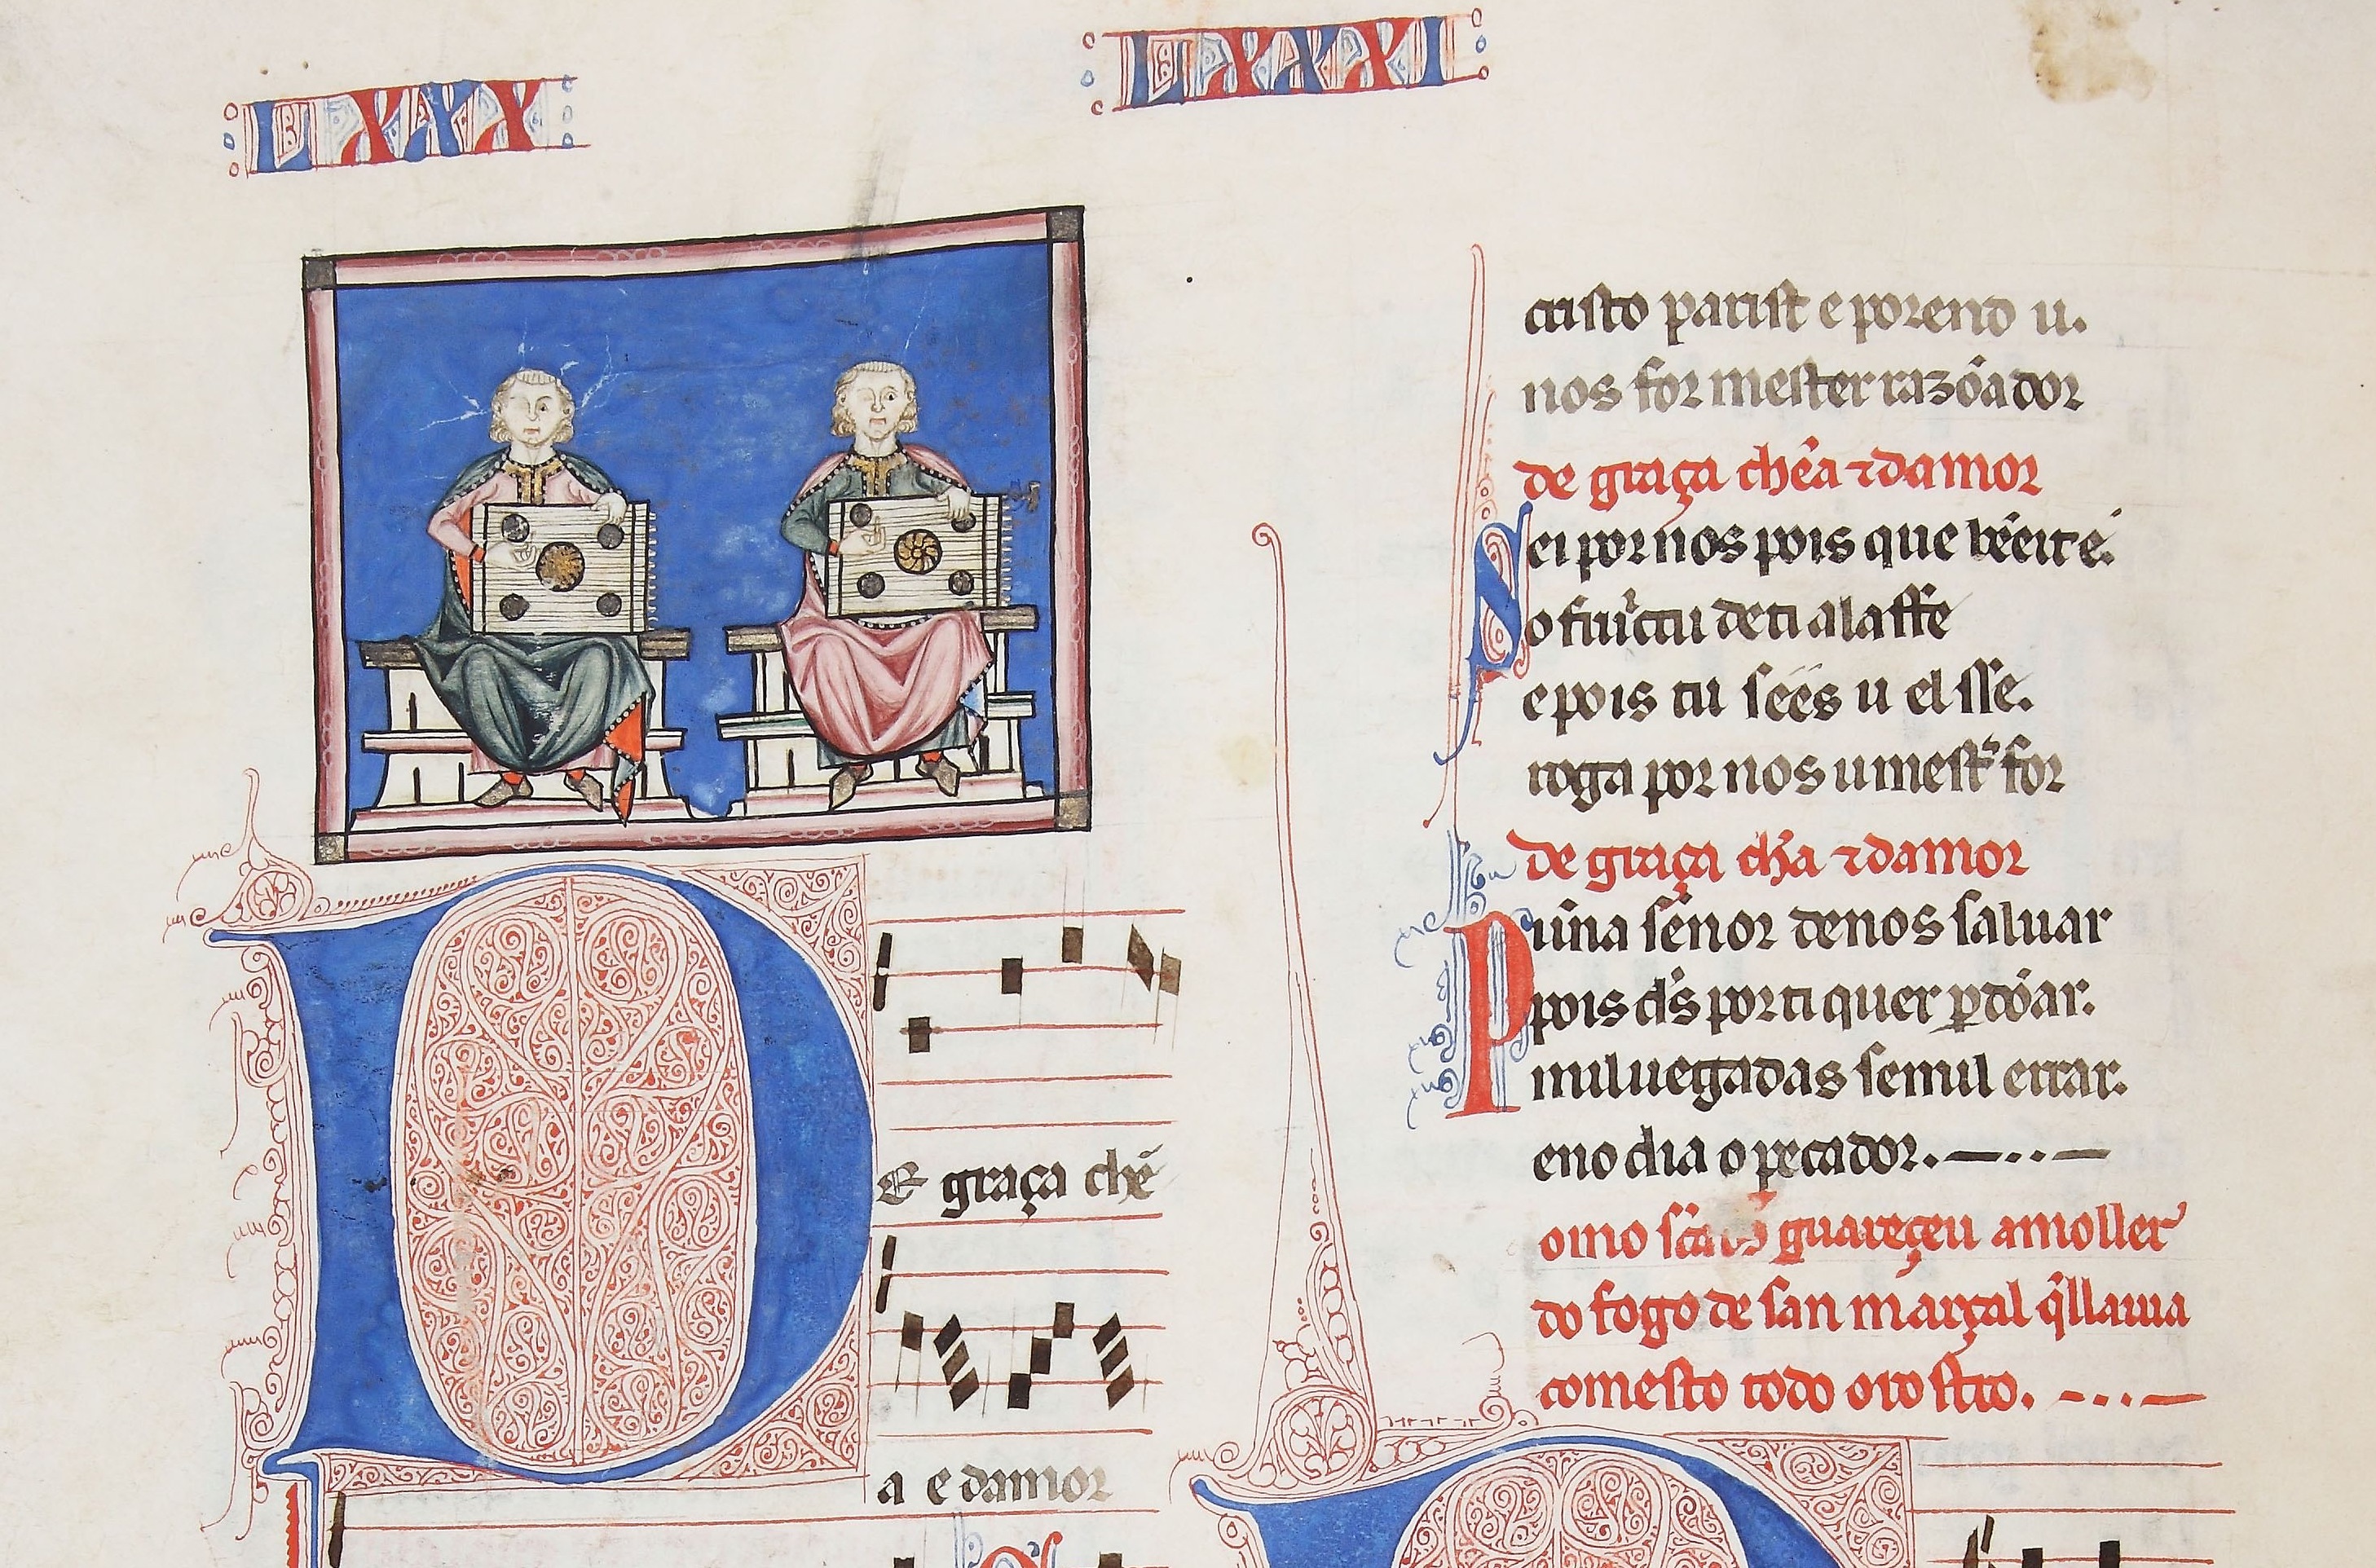 LXXX
LXXXI
E graça chẽ
a e damor
cristo parist e porend u.
nos for mester razõador
de graça chẽa ⁊ damor
Sei por nos pois que bẽeit é.
o fruitu de ti a la ffe
e pois tu sées u el sse.
roga por nos u mest̉ for
de graça ch̃a ⁊ damor
Pũna sẽnor de nos saluar
pois d̃s por ti quer ꝑdõar.
mil uegadas se mil errar.
eno dia o pecador.
omo guareçeu a moller
do fogo de san marçal q̃ ll auia
comesto todo o rostro.